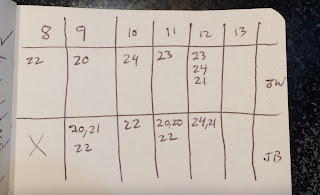 8 9 10 11 12 13
22 20 24 23 23
24
21 JW
X 20,21 22 20,20 24,21
22 22
JB